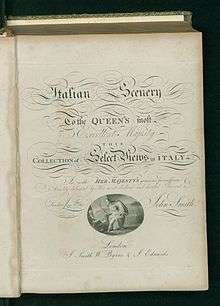 Italian Scenery
To the QUEEN'S most
Excellent Majesty
THIS
COLLECTION of Select Views in ITALY
HER MAJESTY'S
John Smith
London
J. Smith, W. Byrne & J. Edwards